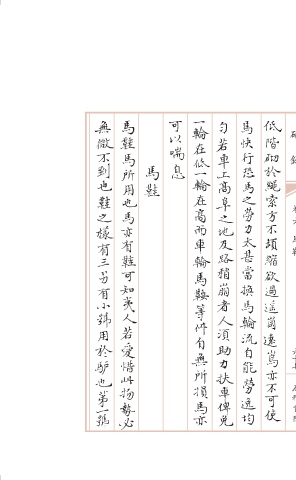 低階砌於繩索方不頡頏欲過遥茵遠嵩亦不可使
馬快行恐馬之勞力太甚當換馬輪流自能勞逸均
勻若車上高阜之地及路稍崩者人須助力扶車俾免
一輪在低一輪在高而車輪馬鞍等件自無所損馬亦
可以喘息
馬鞋
馬鞋馬所用也馬亦有鞋可知夷人若愛惜此物勢必
無微不到也鞋之樣有三另有小號用於驢也第一號